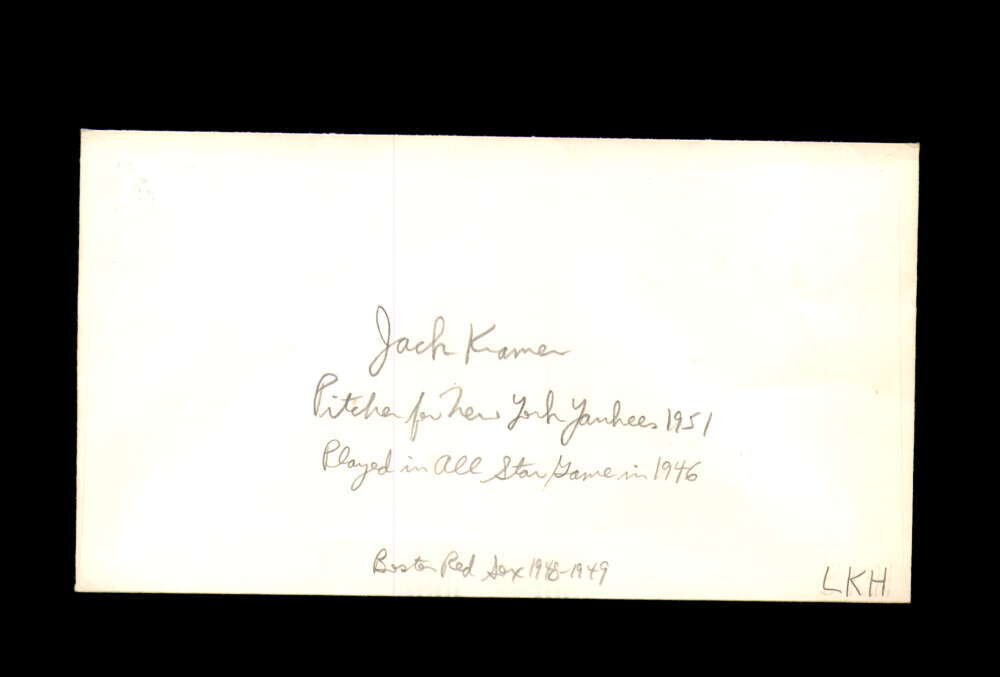 Jack Kramer
Pitcher for New York Yankees 1951
Played in All Star Game in 1946
Boston Red Sox 1948-1949
LKH